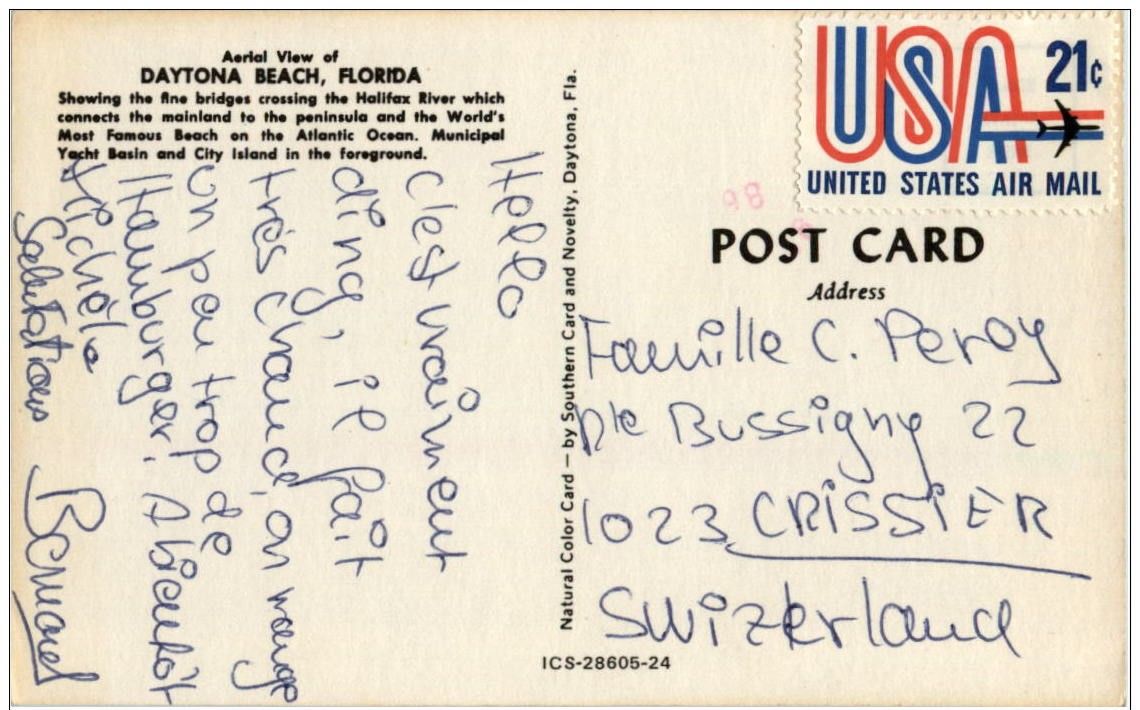 Aerial View of
DAYTONA BEACH, FLORIDA
Showing the fine bridges crossing the Halifax River which
connects the mainland to the peninsula and the World's
Most Famous Beach on the Atlantic Ocean. Municipal
Yacht Basin and City Island in the foreground.
Hello
C'est vraiment
ding, il fait
très chaud, on mange
un peu trop de
Hamburger. A bientôt
Nichola
Salutations Bernard
Natural Color Card — by Southern Card and Novelty, Daytona, Fla.
USA 21c
UNITED STATES AIR MAIL
98
POST CARD
Address
Famille C. Peroy
Rte Bussigny 22
1023 CRISSIER
Swizerland
ICS-28605-24